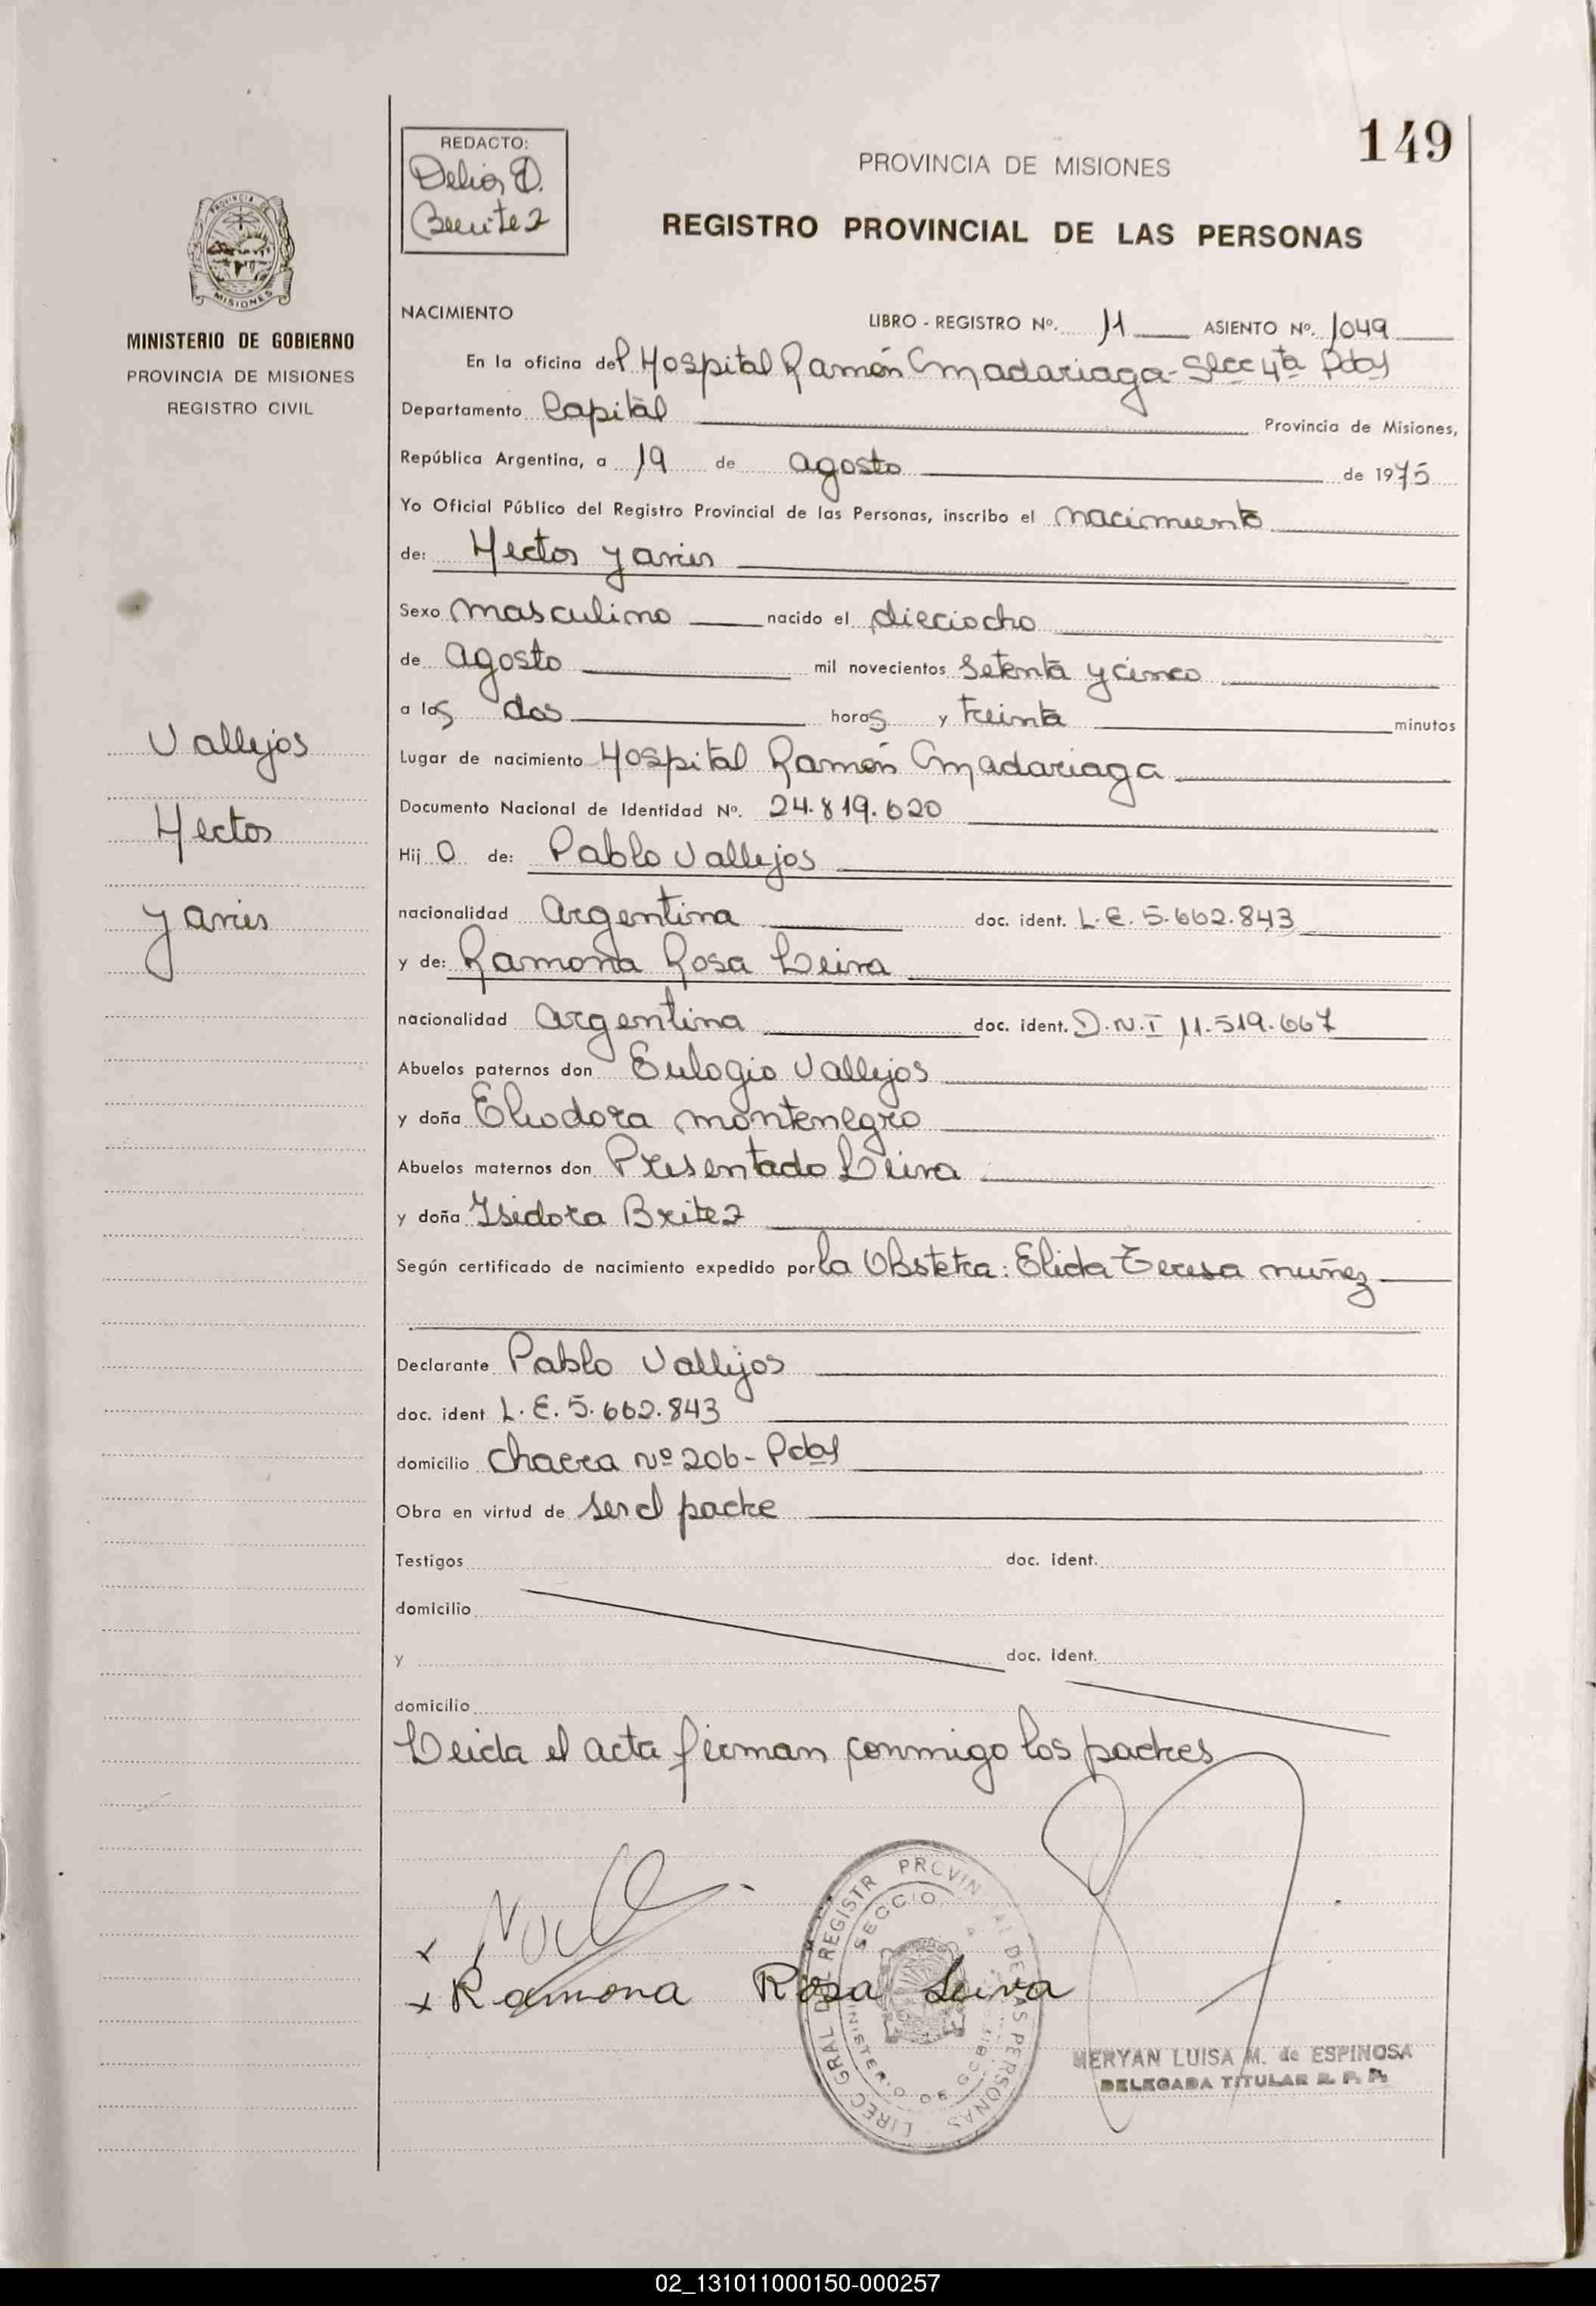 149
REDACTO:
Delia D.
Benitez
PROVINCIA DE MISIONES
REGISTRO PROVINCIAL DE LAS PERSONAS
PROVINCIA DE
MISIONES
MINISTERIO DE GOBIERNO
PROVINCIA DE MISIONES
REGISTRO CIVIL
NACIMIENTO
LIBRO - REGISTRO Nº. 11 ASIENTO Nº. 1049
En la oficina del Hospital Ramón Madariaga - Secc 4ta Pdas
Departamento Capital Provincia de Misiones,
República Argentina, a 19 de agosto de 1975
Yo Oficial Público del Registro Provincial de las Personas, inscribo el nacimiento
de: Hector Javier
Sexo masculino nacido el dieciocho
de agosto mil novecientos setenta y cinco
a las dos horas y treinta minutos
Lugar de nacimiento Hospital Ramón Madariaga
Documento Nacional de Identidad Nº. 24.819.620
Hij o de: Pablo Vallejos
nacionalidad argentina doc. ident. L.E. 5.662.843
y de: Ramona Rosa Leiva
nacionalidad argentina doc. ident. D.N.I 11.519.667
Abuelos paternos don Eulogio Vallejos
y doña Eliodora Montenegro
Abuelos maternos don Presentado Leiva
y doña Isidora Britez
Según certificado de nacimiento expedido por la Obstetra: Elida Teresa Nuñez
Declarante Pablo Vallejos
doc. ident L.E. 5.662.843
domicilio Chacra Nº 206 - Pdas
Obra en virtud de ser el padre
Testigos doc. ident.
domicilio
y doc. ident.
domicilio
Leida el acta firman conmigo los padres
Vallejos
Hector
Javier
x
x Ramona Rosa Leiva
DIREC GRAL DEL REGISTR PROVINCIAL DE LAS PERSONAS
SECCIO 4
MINISTERIO DE GOBIE
MERYAN LUISA M. de ESPINOSA
DELEGADA TITULAR R. P. P.
02_131011000150-000257